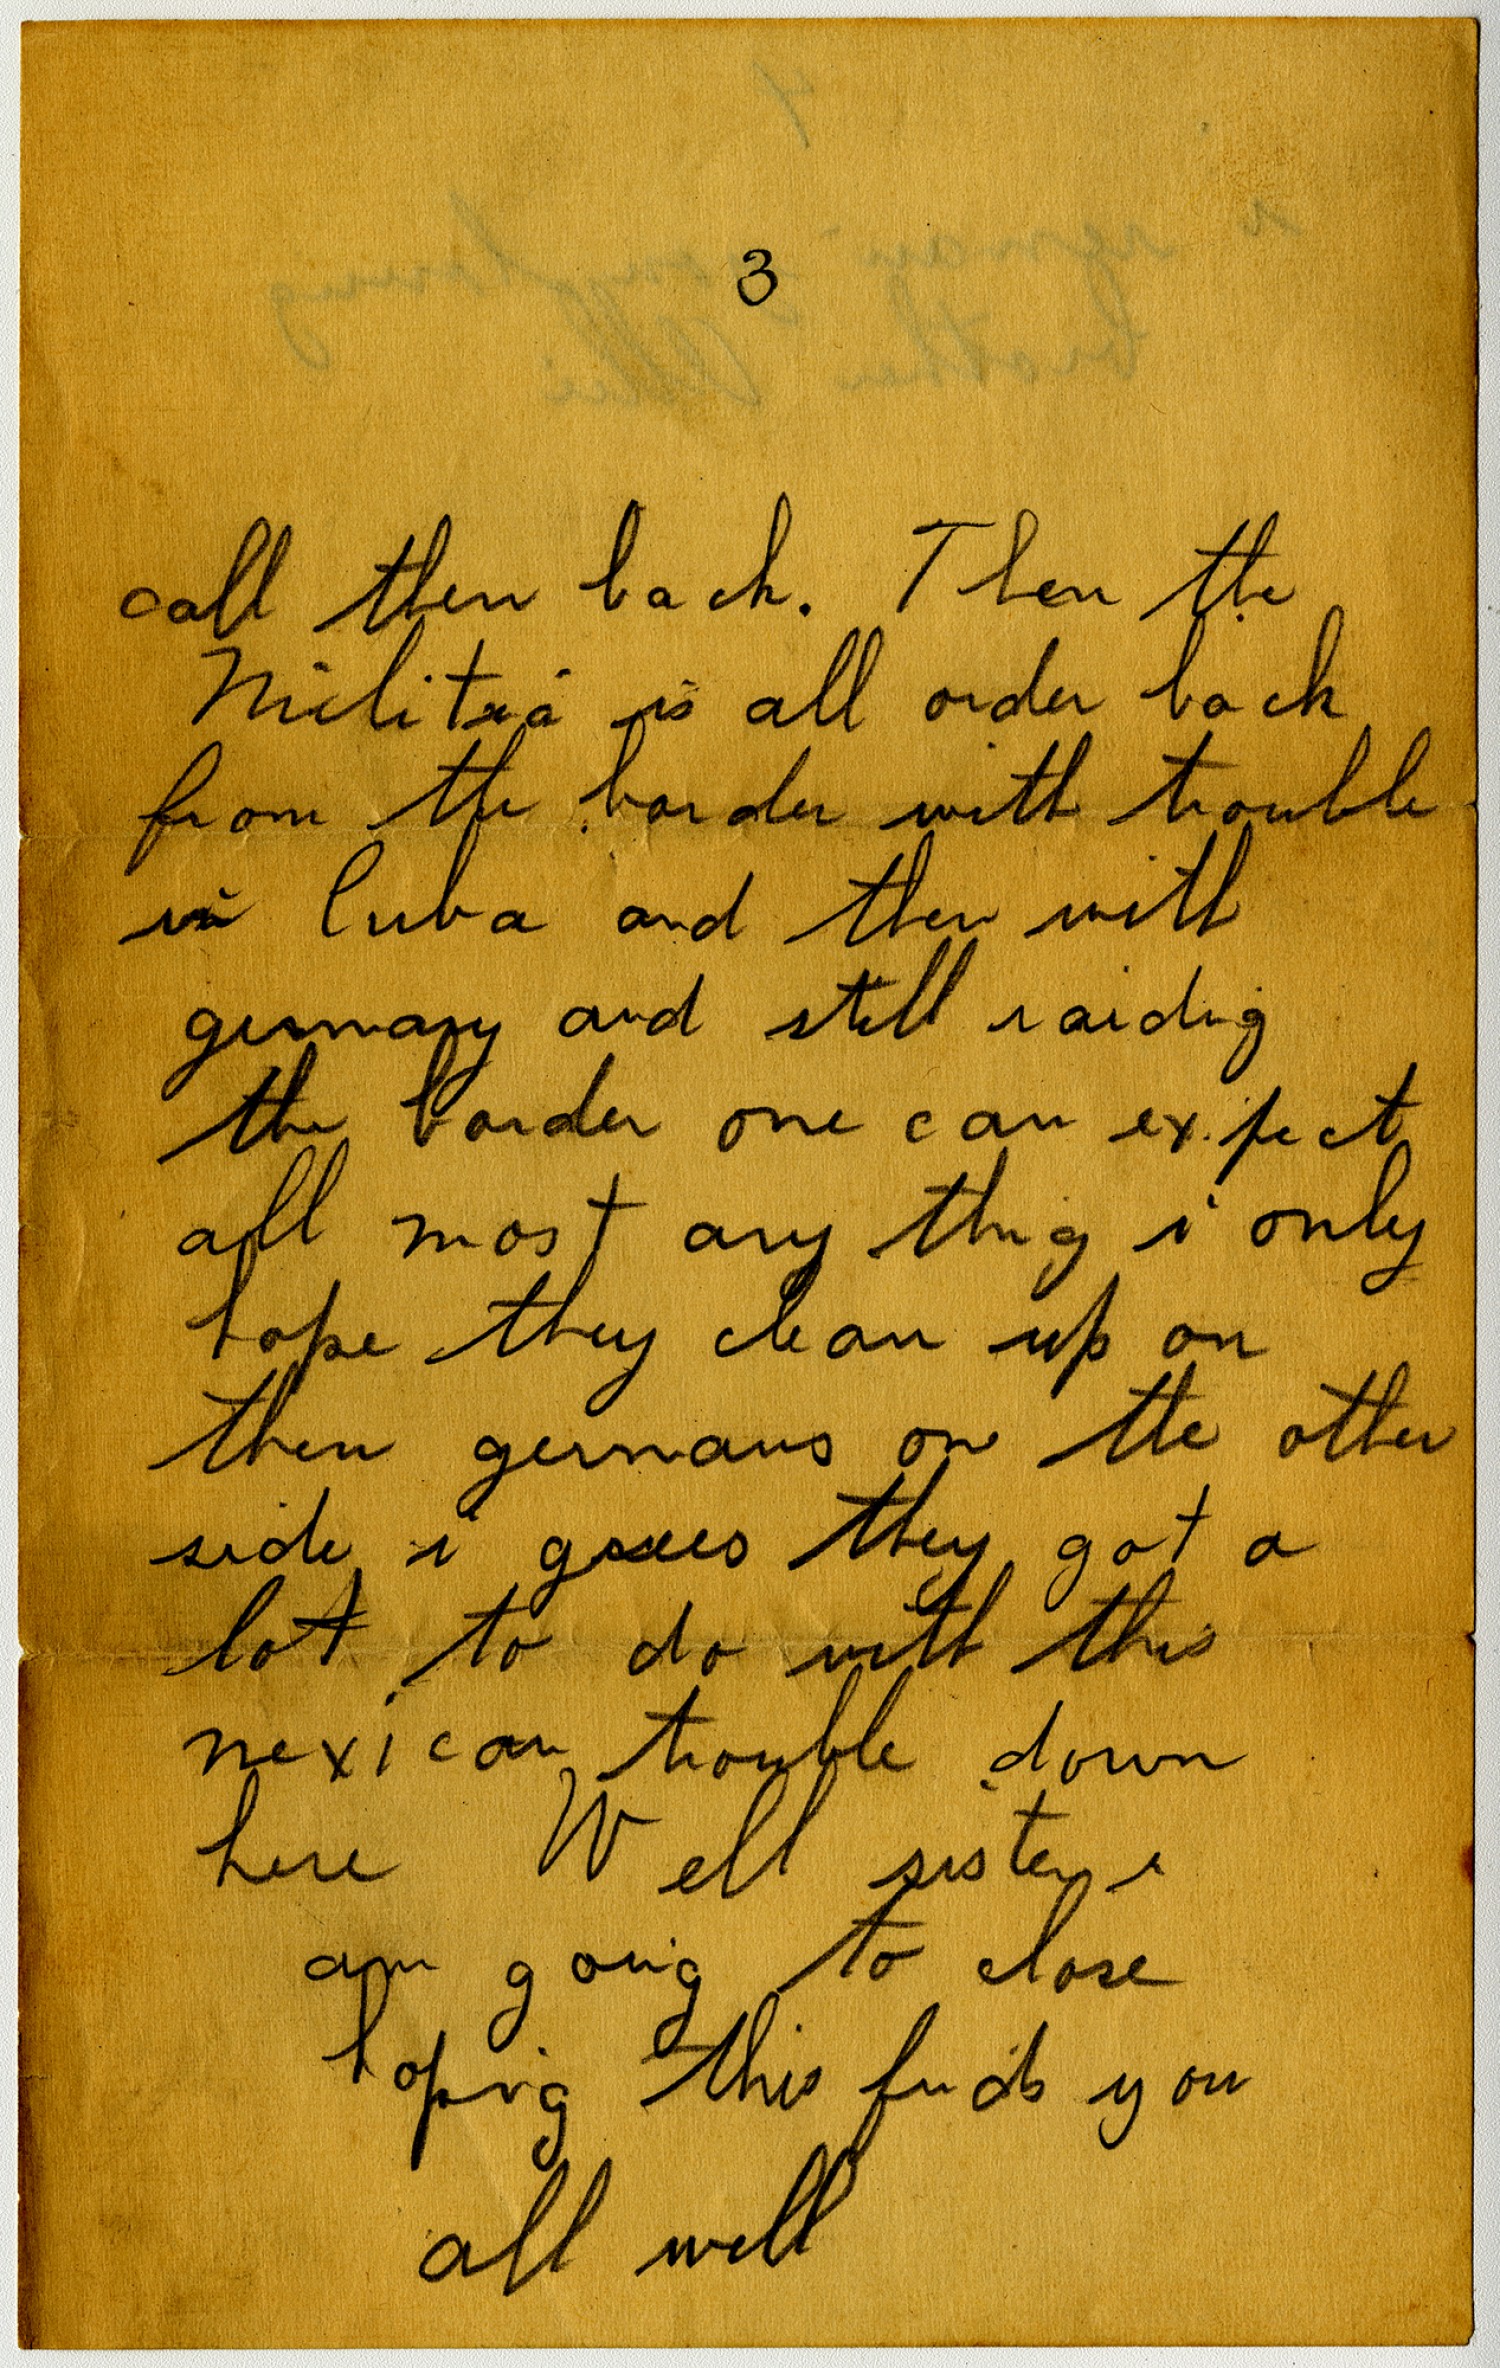 3
call them back. Then the
Militia is all order back
from the border with trouble
in Cuba and then with
germany and still raiding
the border one can expect
all most any thing i only
hope they clean up on
them germans on the other
side i guess they got a
lot to do with this
mexican trouble down
here Well sister i
am going to close
hoping this finds you
all well